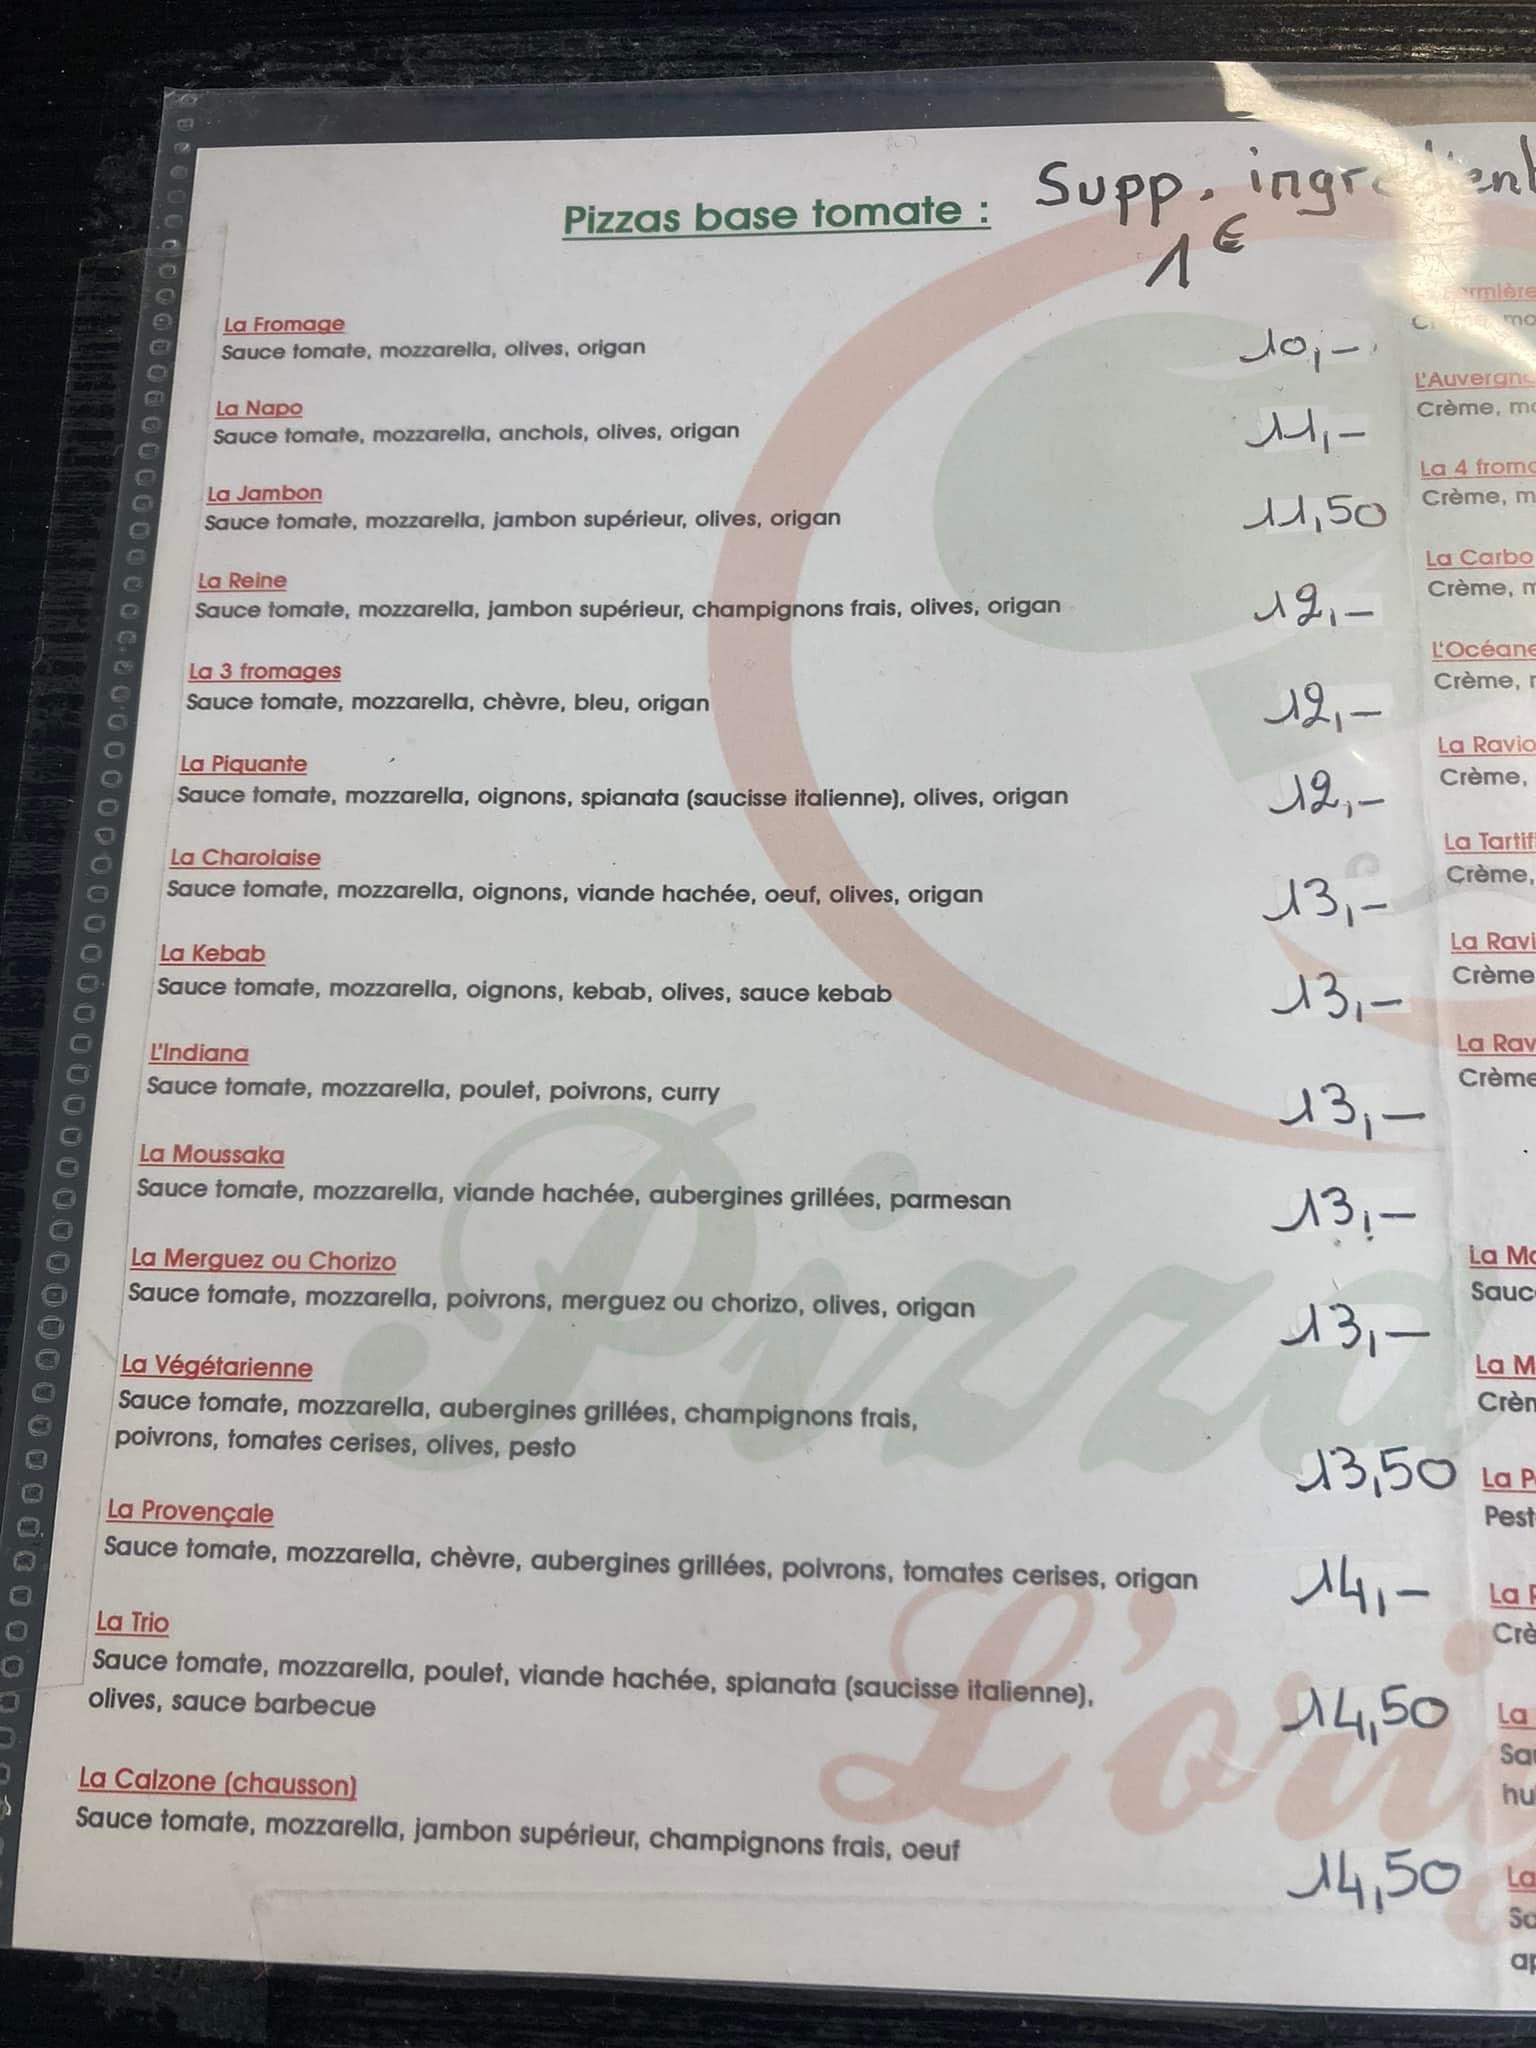 Pizzas base tomate :
Supp. ingrédient
1€
La Fromage
Sauce tomate, mozzarella, olives, origan
10,-
La Napo
Sauce tomate, mozzarella, anchois, olives, origan
11,-
La Jambon
Sauce tomate, mozzarella, jambon supérieur, olives, origan
11,50
La Reine
Sauce tomate, mozzarella, jambon supérieur, champignons frais, olives, origan
12,-
La 3 fromages
Sauce tomate, mozzarella, chèvre, bleu, origan
12,-
La Piquante
Sauce tomate, mozzarella, oignons, spianata (saucisse italienne), olives, origan
12,-
La Charolaise
Sauce tomate, mozzarella, oignons, viande hachée, oeuf, olives, origan
13,-
La Kebab
Sauce tomate, mozzarella, oignons, kebab, olives, sauce kebab
13,-
L'Indiana
Sauce tomate, mozzarella, poulet, poivrons, curry
13,-
La Moussaka
Sauce tomate, mozzarella, viande hachée, aubergines grillées, parmesan
13,-
La Merguez ou Chorizo
Sauce tomate, mozzarella, poivrons, merguez ou chorizo, olives, origan
13,-
La Végétarienne
Sauce tomate, mozzarella, aubergines grillées, champignons frais,
poivrons, tomates cerises, olives, pesto
13,50
La Provençale
Sauce tomate, mozzarella, chèvre, aubergines grillées, poivrons, tomates cerises, origan
14,-
La Trio
Sauce tomate, mozzarella, poulet, viande hachée, spianata (saucisse italienne),
olives, sauce barbecue
14,50
La Calzone (chausson)
Sauce tomate, mozzarella, jambon supérieur, champignons frais, oeuf
14,50
Pizza
L'ori
L'Auvergn
Crème, mo
La 4 from
Crème, m
La Carbo
Crème, m
L'Océane
Crème,
La Ravio
Crème,
La Tartif
Crème,
La Ravi
Crème
La Rav
Crème
La Mo
Sauc
La M
Crèm
La P
Pest
La
Crè
La
Sau
hu
La